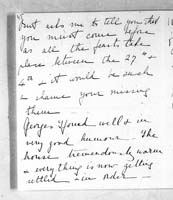 me to tell you that
you must come before
as all the feasts take
place between the 27th &
4th & it would be such
a shame your missing
them —
Georges Yfound well & in
very good humour. The
house tremendously warm
& everything is now getting
settled & in order —